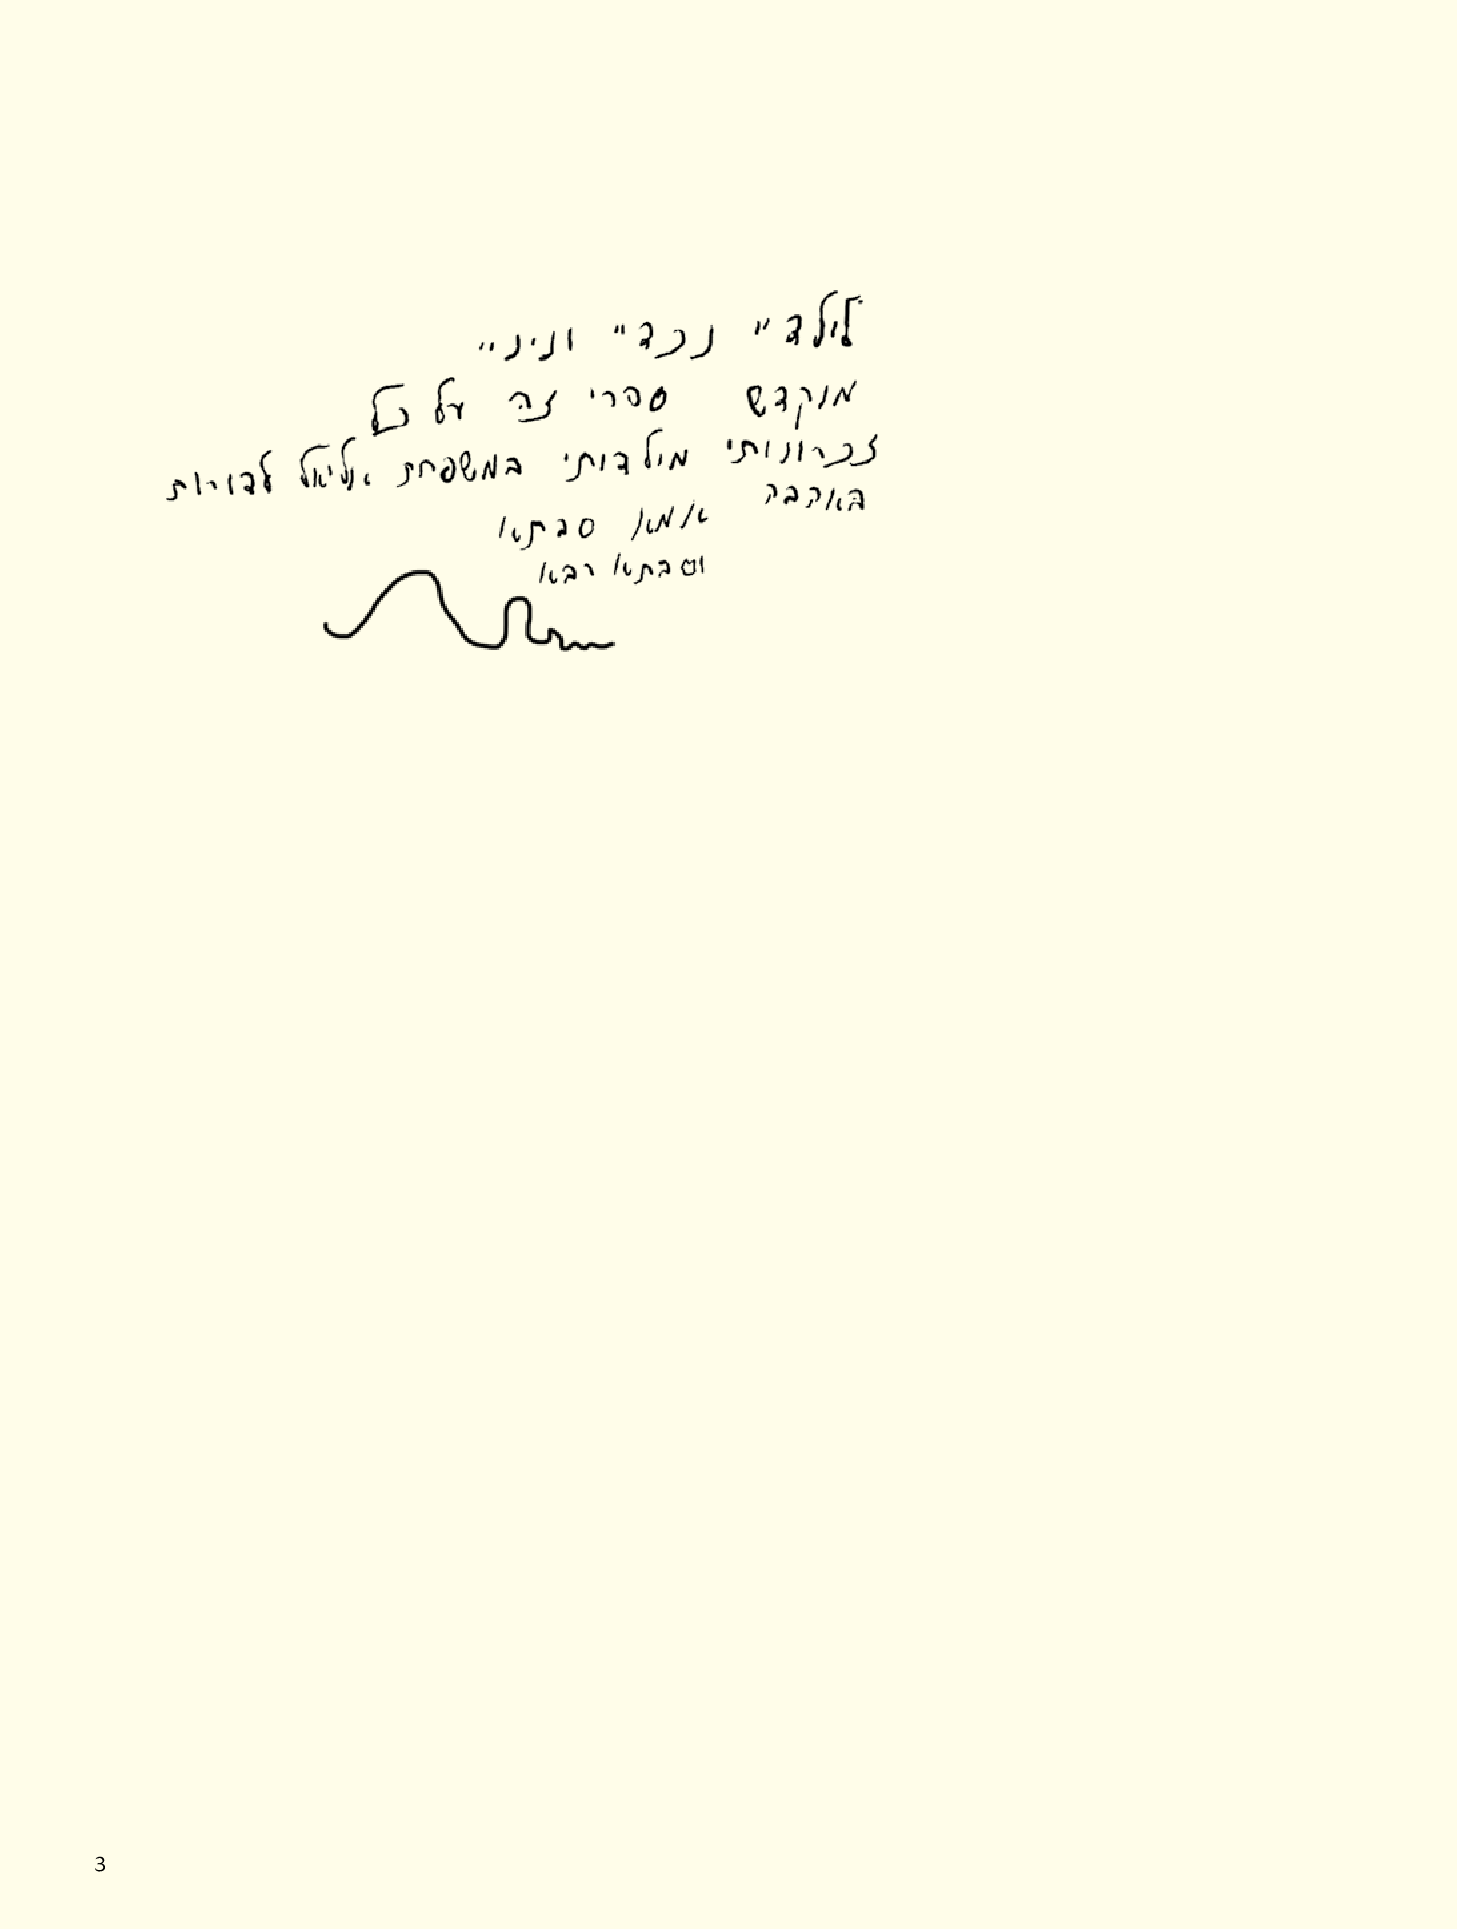 לילדיי נכדיי וניניי
מוקדש ספרי זה על כל
זכרונותי מילדותי במשפחת אליאל לדורות
באהבה אמא סבתא
וסבתא רבא
3